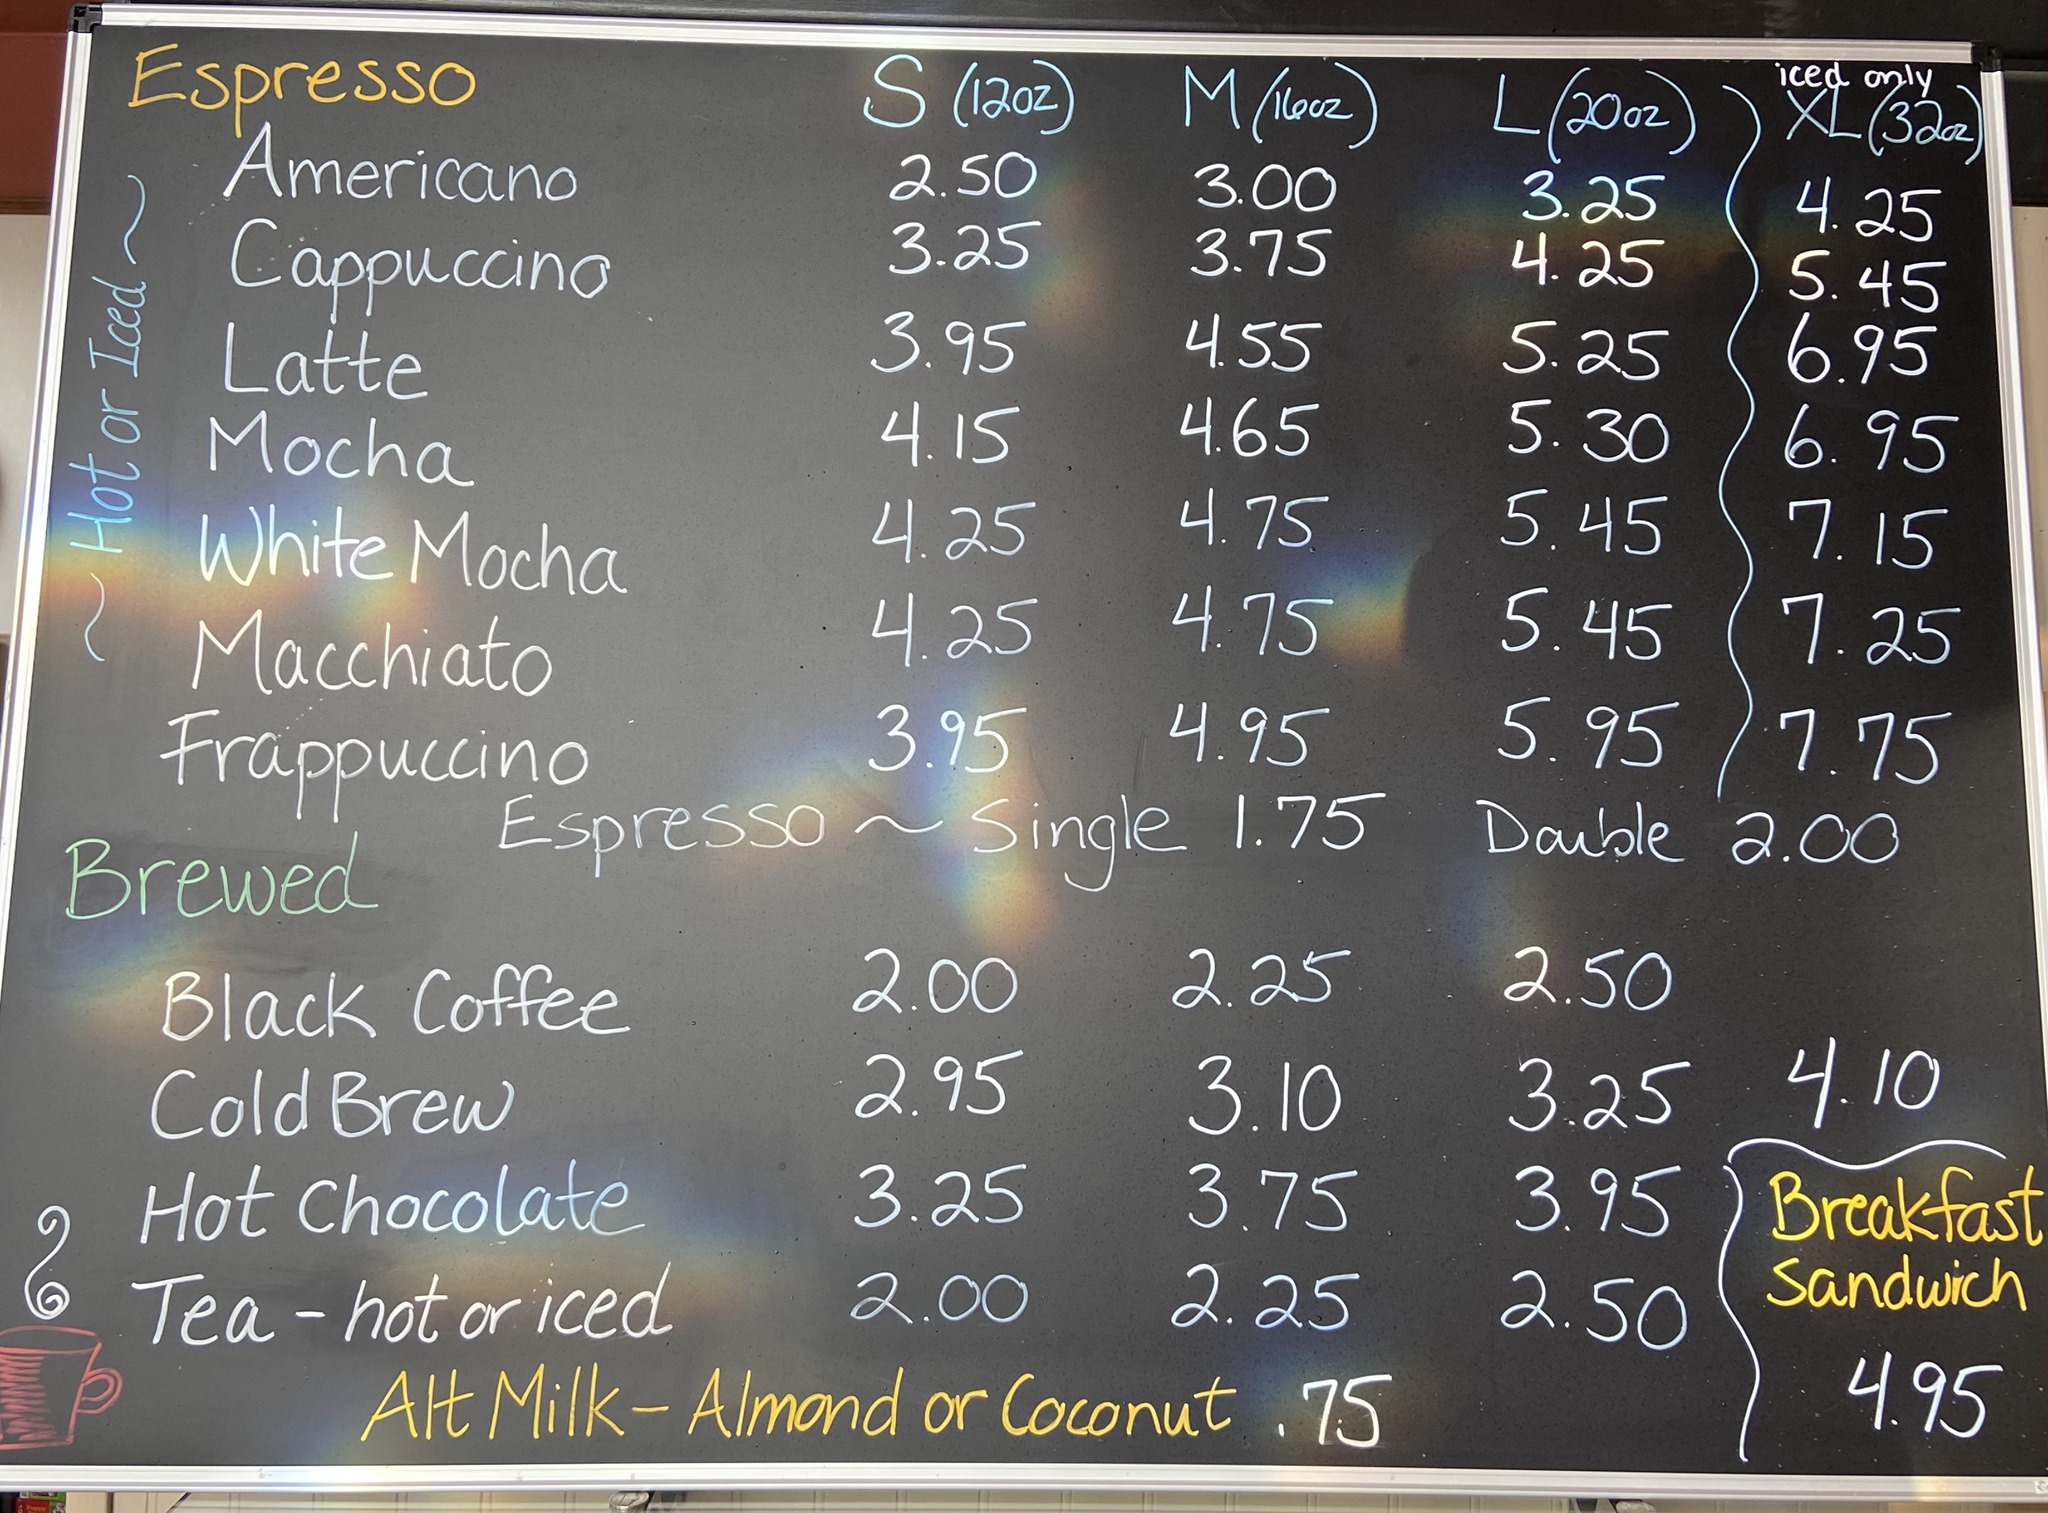 iced only
Espresso S (12oz) M (16oz) L (20oz) XL (32oz)
~ Hot or Iced ~
Americano 2.50 3.00 3.25 4.25
Cappuccino 3.25 3.75 4.25 5.45
Latte 3.95 4.55 5.25 6.95
Mocha 4.15 4.65 5.30 6.95
White Mocha 4.25 4.75 5.45 7.15
Macchiato 4.25 4.75 5.45 7.25
Frappuccino 3.95 4.95 5.95 7.75
Espresso ~ Single 1.75 Double 2.00
Brewed
Black Coffee 2.00 2.25 2.50
Cold Brew 2.95 3.10 3.25 4.10
Hot Chocolate 3.25 3.75 3.95
Tea - hot or iced 2.00 2.25 2.50
Breakfast
Sandwich
4.95
Alt Milk - Almond or Coconut .75